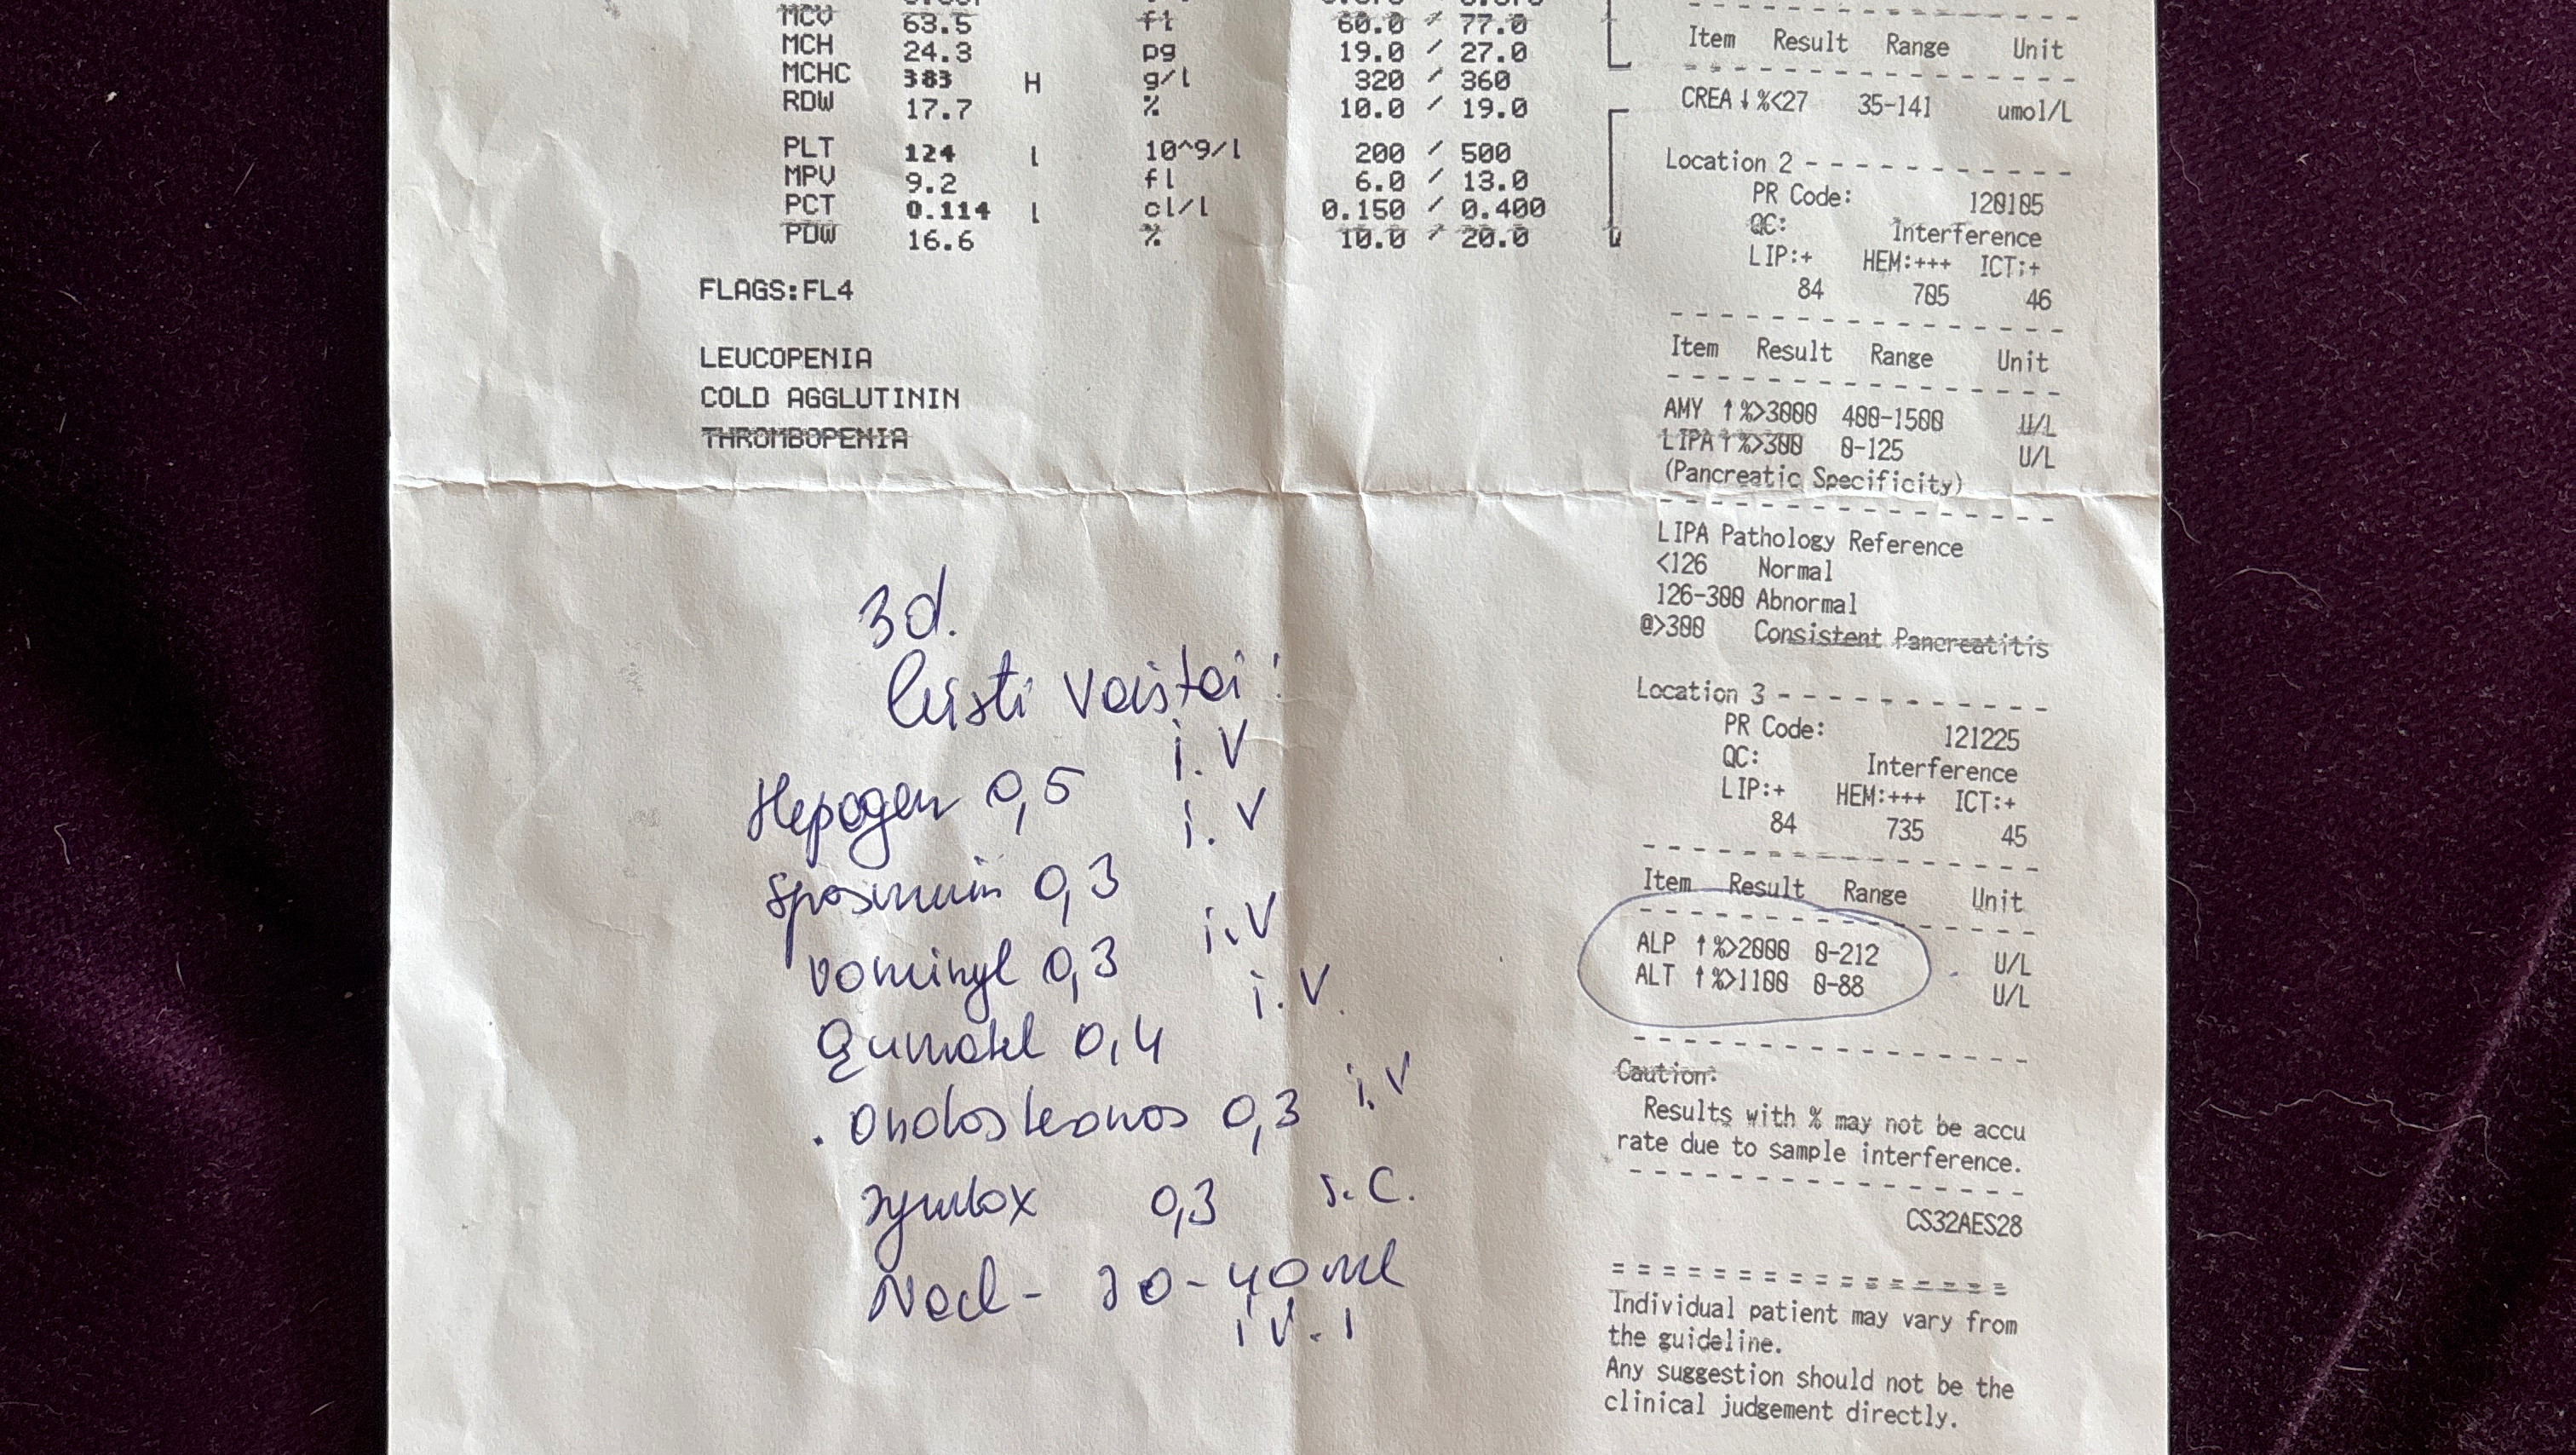 MCV 63.5 fl 60.0 / 77.0
MCH 24.3 pg 19.0 / 27.0
MCHC 383 H g/l 320 / 360
RDW 17.7 % 10.0 / 19.0
PLT 124 l 10^9/l 200 / 500
MPV 9.2 fl 6.0 / 13.0
PCT 0.114 l cl/l 0.150 / 0.400
PDW 16.6 % 10.0 / 20.0
FLAGS:FL4
LEUCOPENIA
COLD AGGLUTININ
THROMBOPENIA
3d.
leisti vaistai:
Hepagen 0,5 i.V
spasmium 0,3 i.V
vominyl 0,3 i.V
Qumatel 0,4 i.V.
0,3 i.V
0,3 s.c.
Nacl - 30-40ml
i.V.
Item Result Range Unit
CREA ↓%<27 35-141 umol/L
Location 2
PR Code: 120105
QC: Interference
LIP:+ HEM:+++ ICT:+
84 705 46
Item Result Range Unit
AMY ↑%>3000 400-1500 U/L
LIPA↑%>300 0-125 U/L
(Pancreatic Specificity)
LIPA Pathology Reference
<126 Normal
126-300 Abnormal
@>300 Consistent Pancreatitis
Location 3
PR Code: 121225
QC: Interference
LIP:+ HEM:+++ ICT:+
84 735 45
Item Result Range Unit
ALP ↑%>2000 0-212 U/L
ALT ↑%>1100 0-88 U/L
Caution:
Results with % may not be accu
rate due to sample interference.
CS32AES28
Individual patient may vary from
the guideline.
Any suggestion should not be the
clinical judgement directly.